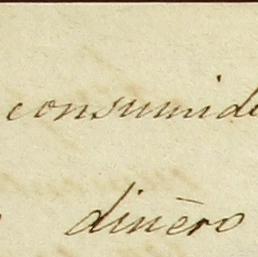 consumid
dinero